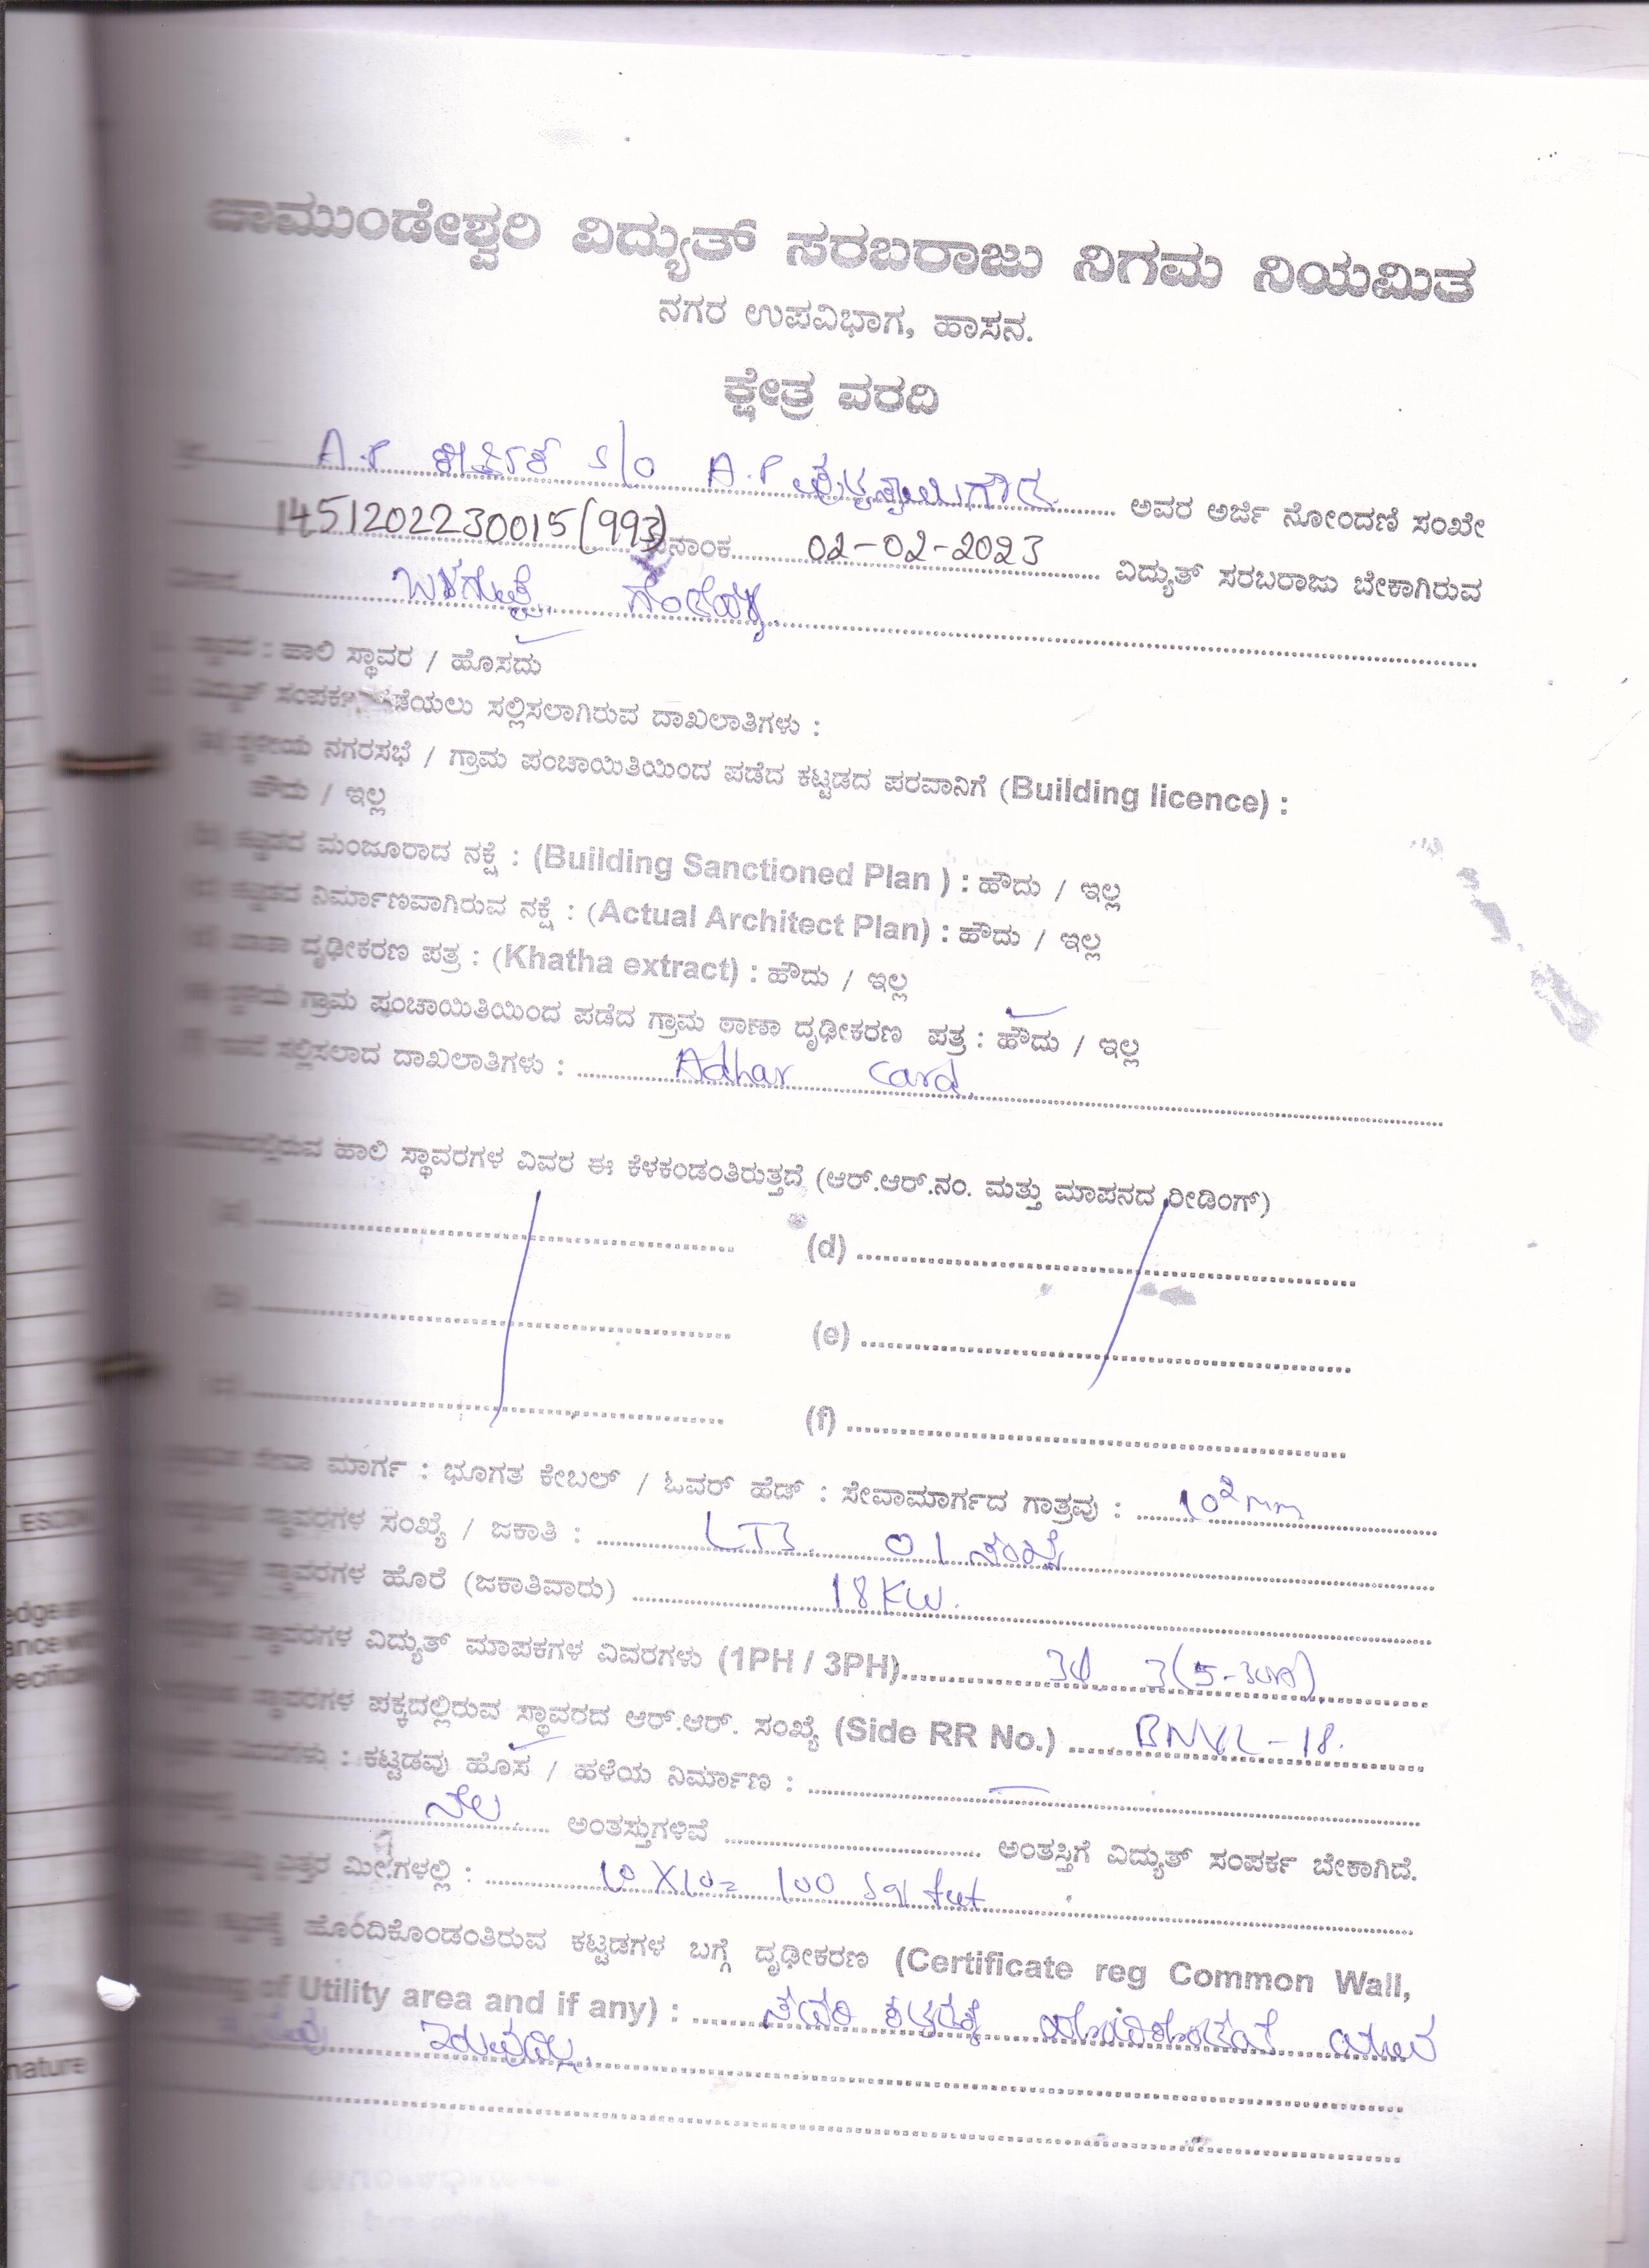 ಚಾಮುಂಡೇಶ್ವರಿ ವಿದ್ಯುತ್ ಸರಬರಾಜು ನಿಗಮ ನಿಯಮಿತ
ನಗರ ಉಪವಿಭಾಗ, ಹಾಸನ.
ಕ್ಷೇತ್ರ ವರದಿ
A.P s/o A.P ಅವರ ಅರ್ಜಿ ನೋಂದಣಿ ಸಂಖ್ಯೇ
14512022230015(993) ದಿನಾಂಕ 02-02-2023 ವಿದ್ಯುತ್ ಸರಬರಾಜು ಬೇಕಾಗಿರುವ
ಸ್ಥಾವರ : ಹಾಲಿ ಸ್ಥಾವರ / ಹೊಸದು
ವಿದ್ಯುತ್ ಸಂಪರ್ಕ ಪಡೆಯಲು ಸಲ್ಲಿಸಲಾಗಿರುವ ದಾಖಲಾತಿಗಳು :
(a) ಸ್ಥಳೀಯ ನಗರಸಭೆ / ಗ್ರಾಮ ಪಂಚಾಯಿತಿಯಿಂದ ಪಡೆದ ಕಟ್ಟಡದ ಪರವಾನಿಗೆ (Building licence) :
ಹೌದು / ಇಲ್ಲ
(b) ಕಟ್ಟಡದ ಮಂಜೂರಾದ ನಕ್ಷೆ : (Building Sanctioned Plan ) : ಹೌದು / ಇಲ್ಲ
(c) ಕಟ್ಟಡದ ನಿರ್ಮಾಣವಾಗಿರುವ ನಕ್ಷೆ : (Actual Architect Plan) : ಹೌದು / ಇಲ್ಲ
(d) ಖಾತಾ ದೃಢೀಕರಣ ಪತ್ರ : (Khatha extract) : ಹೌದು / ಇಲ್ಲ
(e) ಸ್ಥಳೀಯ ಗ್ರಾಮ ಪಂಚಾಯಿತಿಯಿಂದ ಪಡೆದ ಗ್ರಾಮ ಠಾಣಾ ದೃಢೀಕರಣ ಪತ್ರ : ಹೌದು / ಇಲ್ಲ
(f) ಸಲ್ಲಿಸಲಾದ ದಾಖಲಾತಿಗಳು : Adhar Card.
ಹಾಲಿ ಸ್ಥಾವರಗಳ ವಿವರ ಈ ಕೆಳಕಂಡಂತಿರುತ್ತದೆ (ಆರ್.ಆರ್.ನಂ. ಮತ್ತು ಮಾಪನದ ರೀಡಿಂಗ್)
(a) (d)
(b) (e)
(c) (f)
ಸೇವಾ ಮಾರ್ಗ : ಭೂಗತ ಕೇಬಲ್ / ಓವರ್ ಹೆಡ್ : ಸೇವಾಮಾರ್ಗದ ಗಾತ್ರವು : 10²mm
ಸ್ಥಾವರಗಳ ಸಂಖ್ಯೆ / ಜಕಾತಿ : LT3. 01 ಸಂಖ್ಯೆ
ಸ್ಥಾವರಗಳ ಹೊರೆ (ಜಕಾತಿವಾರು) 18KW.
ಸ್ಥಾವರಗಳ ವಿದ್ಯುತ್ ಮಾಪಕಗಳ ವಿವರಗಳು (1PH / 3PH) 3φ 3(5-30A)
ಸ್ಥಾವರಗಳ ಪಕ್ಕದಲ್ಲಿರುವ ಸ್ಥಾವರದ ಆರ್.ಆರ್. ಸಂಖ್ಯೆ (Side RR No.) -18.
: ಕಟ್ಟಡವು ಹೊಸ / ಹಳೆಯ ನಿರ್ಮಾಣ : —
ನೆಲ ಅಂತಸ್ತುಗಳಿವೆ ಅಂತಸ್ತಿಗೆ ವಿದ್ಯುತ್ ಸಂಪರ್ಕ ಬೇಕಾಗಿದೆ.
ಎತ್ತರ ಮೀ.ಗಳಲ್ಲಿ : 10X10= 100 sq feet
ಹೊಂದಿಕೊಂಡಂತಿರುವ ಕಟ್ಟಡಗಳ ಬಗ್ಗೆ ದೃಢೀಕರಣ (Certificate reg Common Wall,
of Utility area and if any) : ಸದರಿ ಕಟ್ಟಡಕ್ಕೆ ಹೊಂದಿಕೊಂಡಂತೆ ಯಾವ
ಇರುವುದಿಲ್ಲ.